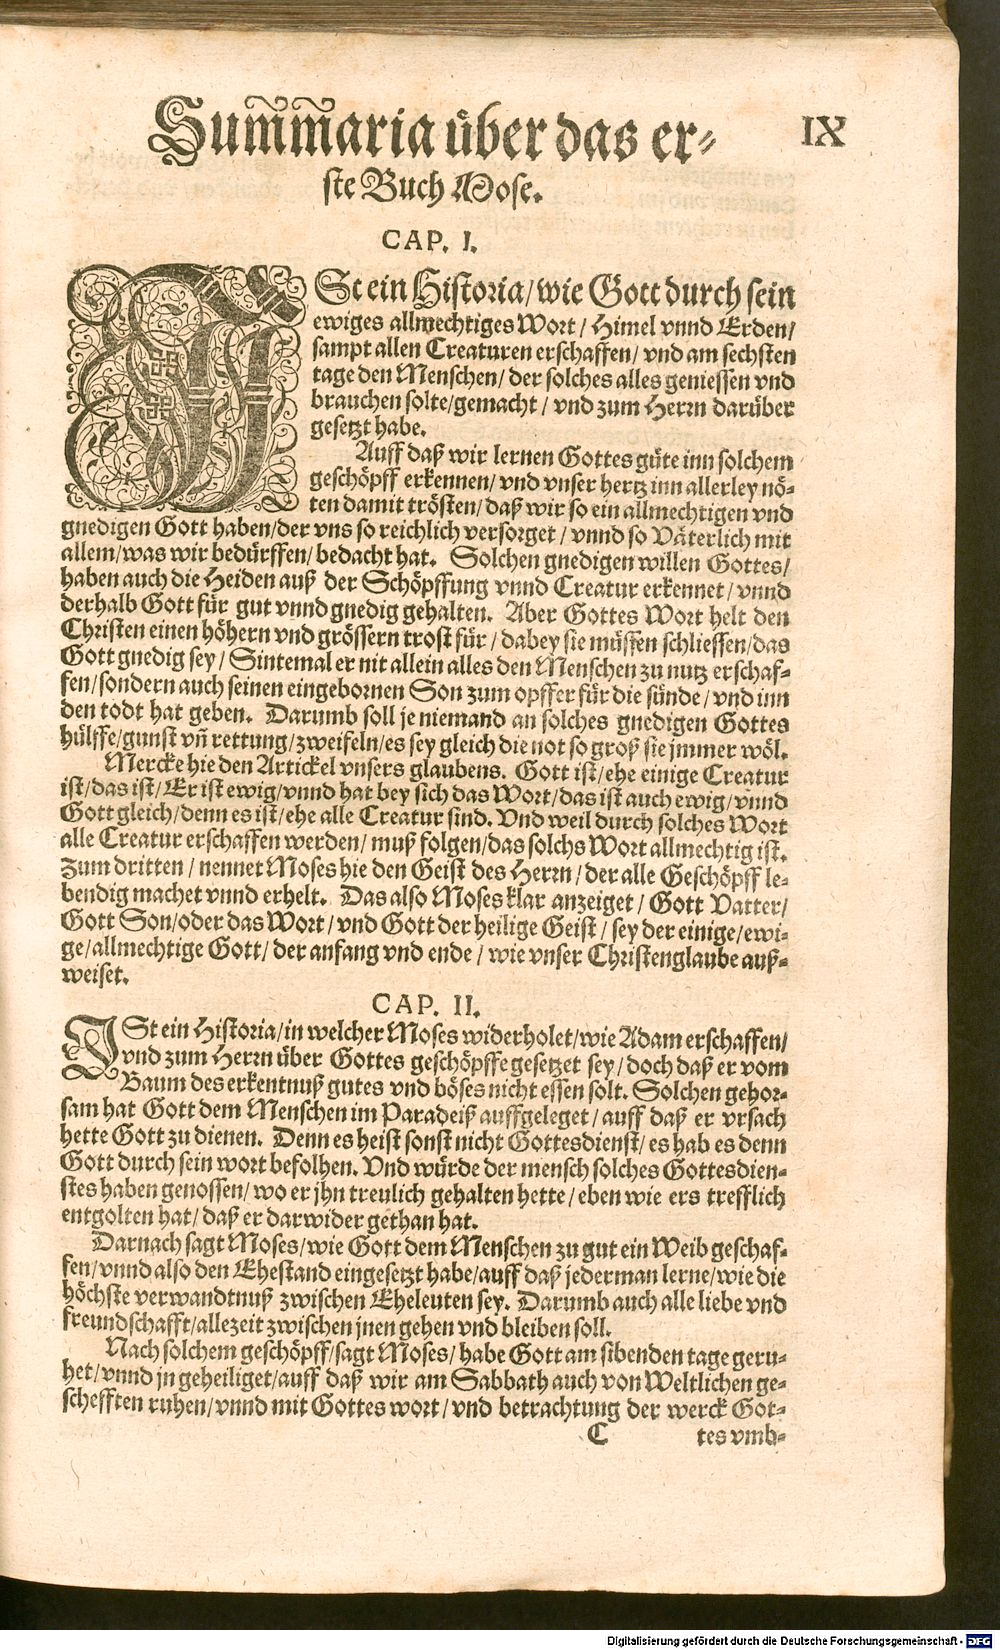 Sum̃m̃aria über das er-
IX
ste Buch Mose.
CAP. I.
ISt ein Historia/wie Gott durch sein
ewiges allmechtiges Wort/ Himel vnnd Erden/
sampt allen Creaturen erschaffen/ vnd am sechsten
tage den Menschen/ der solches alles geniessen vnd
brauchen solte/gemacht/ vnd zum Herrn darüber
gesetzt habe.
Auff daß wir lernen Gottes güte inn solchem
geschöpff erkennen/ vnd vnser hertz inn allerley nö-
ten damit trösten/ daß wir so ein allmechtigen vnd
gnedigen Gott haben/der vns so reichlich versorget/ vnnd so Väterlich mit
allem/was wir bedürffen/ bedacht hat. Solchen gnedigen willen Gottes/
haben auch die Heiden auß der Schöpffung vnnd Creatur erkennet/ vnnd
derhalb Gott für gut vnnd gnedig gehalten. Aber Gottes Wort helt den
Christen einen höhern vnd grössern trost für/ dabey sie müssen schliessen/das
Gott gnedig sey/ Sintemal er nit allein alles den Menschen zu nutz erschaf-
fen/sondern auch seinen eingebornen Son zum opffer für die sünde/ vnd inn
den todt hat geben. Darumb soll je niemand an solches gnedigen Gottes
hülffe/gunst vñ rettung/zweifeln/es sey gleich die not so groß sie jmmer wöl.
Mercke hie den Artickel vnsers glaubens. Gott ist/ehe einige Creatur
ist/das ist/Er ist ewig/vnnd hat bey sich das Wort/das ist auch ewig/vnnd
Gott gleich/denn es ist/ehe alle Creatur sind. Vnd weil durch solches Wort
alle Creatur erschaffen werden/ muß folgen/das solchs Wort allmechtig ist.
Zum dritten/ nennet Moses hie den Geist des Herrn/ der alle Geschöpff le-
bendig machet vnnd erhelt. Das also Moses klar anzeiget/ Gott Vatter/
Gott Son/oder das Wort/ vnd Gott der heilige Geist/ sey der einige/ewi-
ge/allmechtige Gott/ der anfang vnd ende/ wie vnser Christenglaube auß-
weiset.
CAP. II.
ISt ein Historia/in welcher Moses widerholet/wie Adam erschaffen/
vnd zum Herrn über Gottes geschöpffe gesetzet sey/ doch daß er vom
Baum des erkentnuß gutes vnd böses nicht essen solt. Solchen gehor-
sam hat Gott dem Menschen im Paradeiß auffgeleget/ auff daß er vrsach
hette Gott zu dienen. Denn es heist sonst nicht Gottesdienst/ es hab es denn
Gott durch sein wort befolhen. Vnd würde der mensch solches Gottesdien-
stes haben genossen/ wo er jhn treulich gehalten hette/ eben wie ers trefflich
entgolten hat/ daß er darwider gethan hat.
Darnach sagt Moses/ wie Gott dem Menschen zu gut ein Weib geschaf-
fen/vnnd also den Ehestand eingesetzt habe/auff daß jederman lerne/wie die
höchste verwandtnuß zwischen Eheleuten sey. Darumb auch alle liebe vnd
freundschafft/allezeit zwischen jnen gehen vnd bleiben soll.
Nach solchem geschöpff/sagt Moses/ habe Gott am sibenden tage geru-
het/vnnd jn geheiliget/auff daß wir am Sabbath auch von Weltlichen ge-
schefften ruhen/vnnd mit Gottes wort/ vnd betrachtung der werck Got-
C tes vmb-
Digitalisierung gefördert durch die Deutsche Forschungsgemeinschaft - DFG